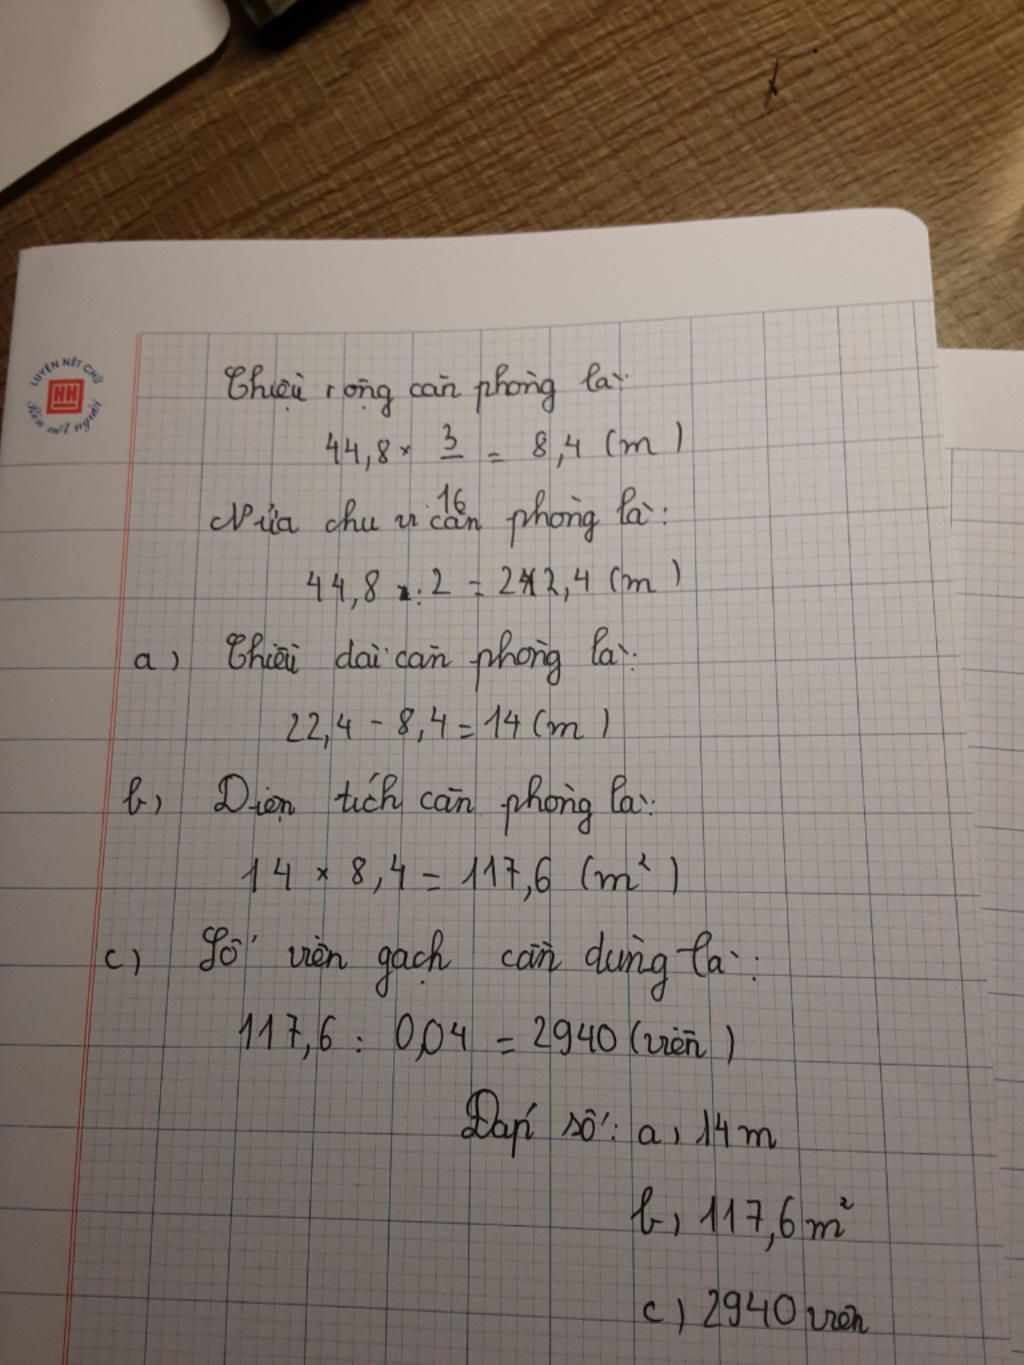 LUYỆN NÉT CHỮ
NH
Rèn nết người
Chiều rộng căn phòng là:
44,8 × 3 = 8,4 (m)
16
Nửa chu vi căn phòng là:
44,8 : 2 = 22,4 (m)
a) Chiều dài căn phòng là:
22,4 - 8,4 = 14 (m)
b) Diện tích căn phòng là:
14 × 8,4 = 117,6 (m²)
c) Số viên gạch cần dùng là:
117,6 : 0,04 = 2940 (viên)
Đáp số: a) 14m
b) 117,6 m²
c) 2940 viên